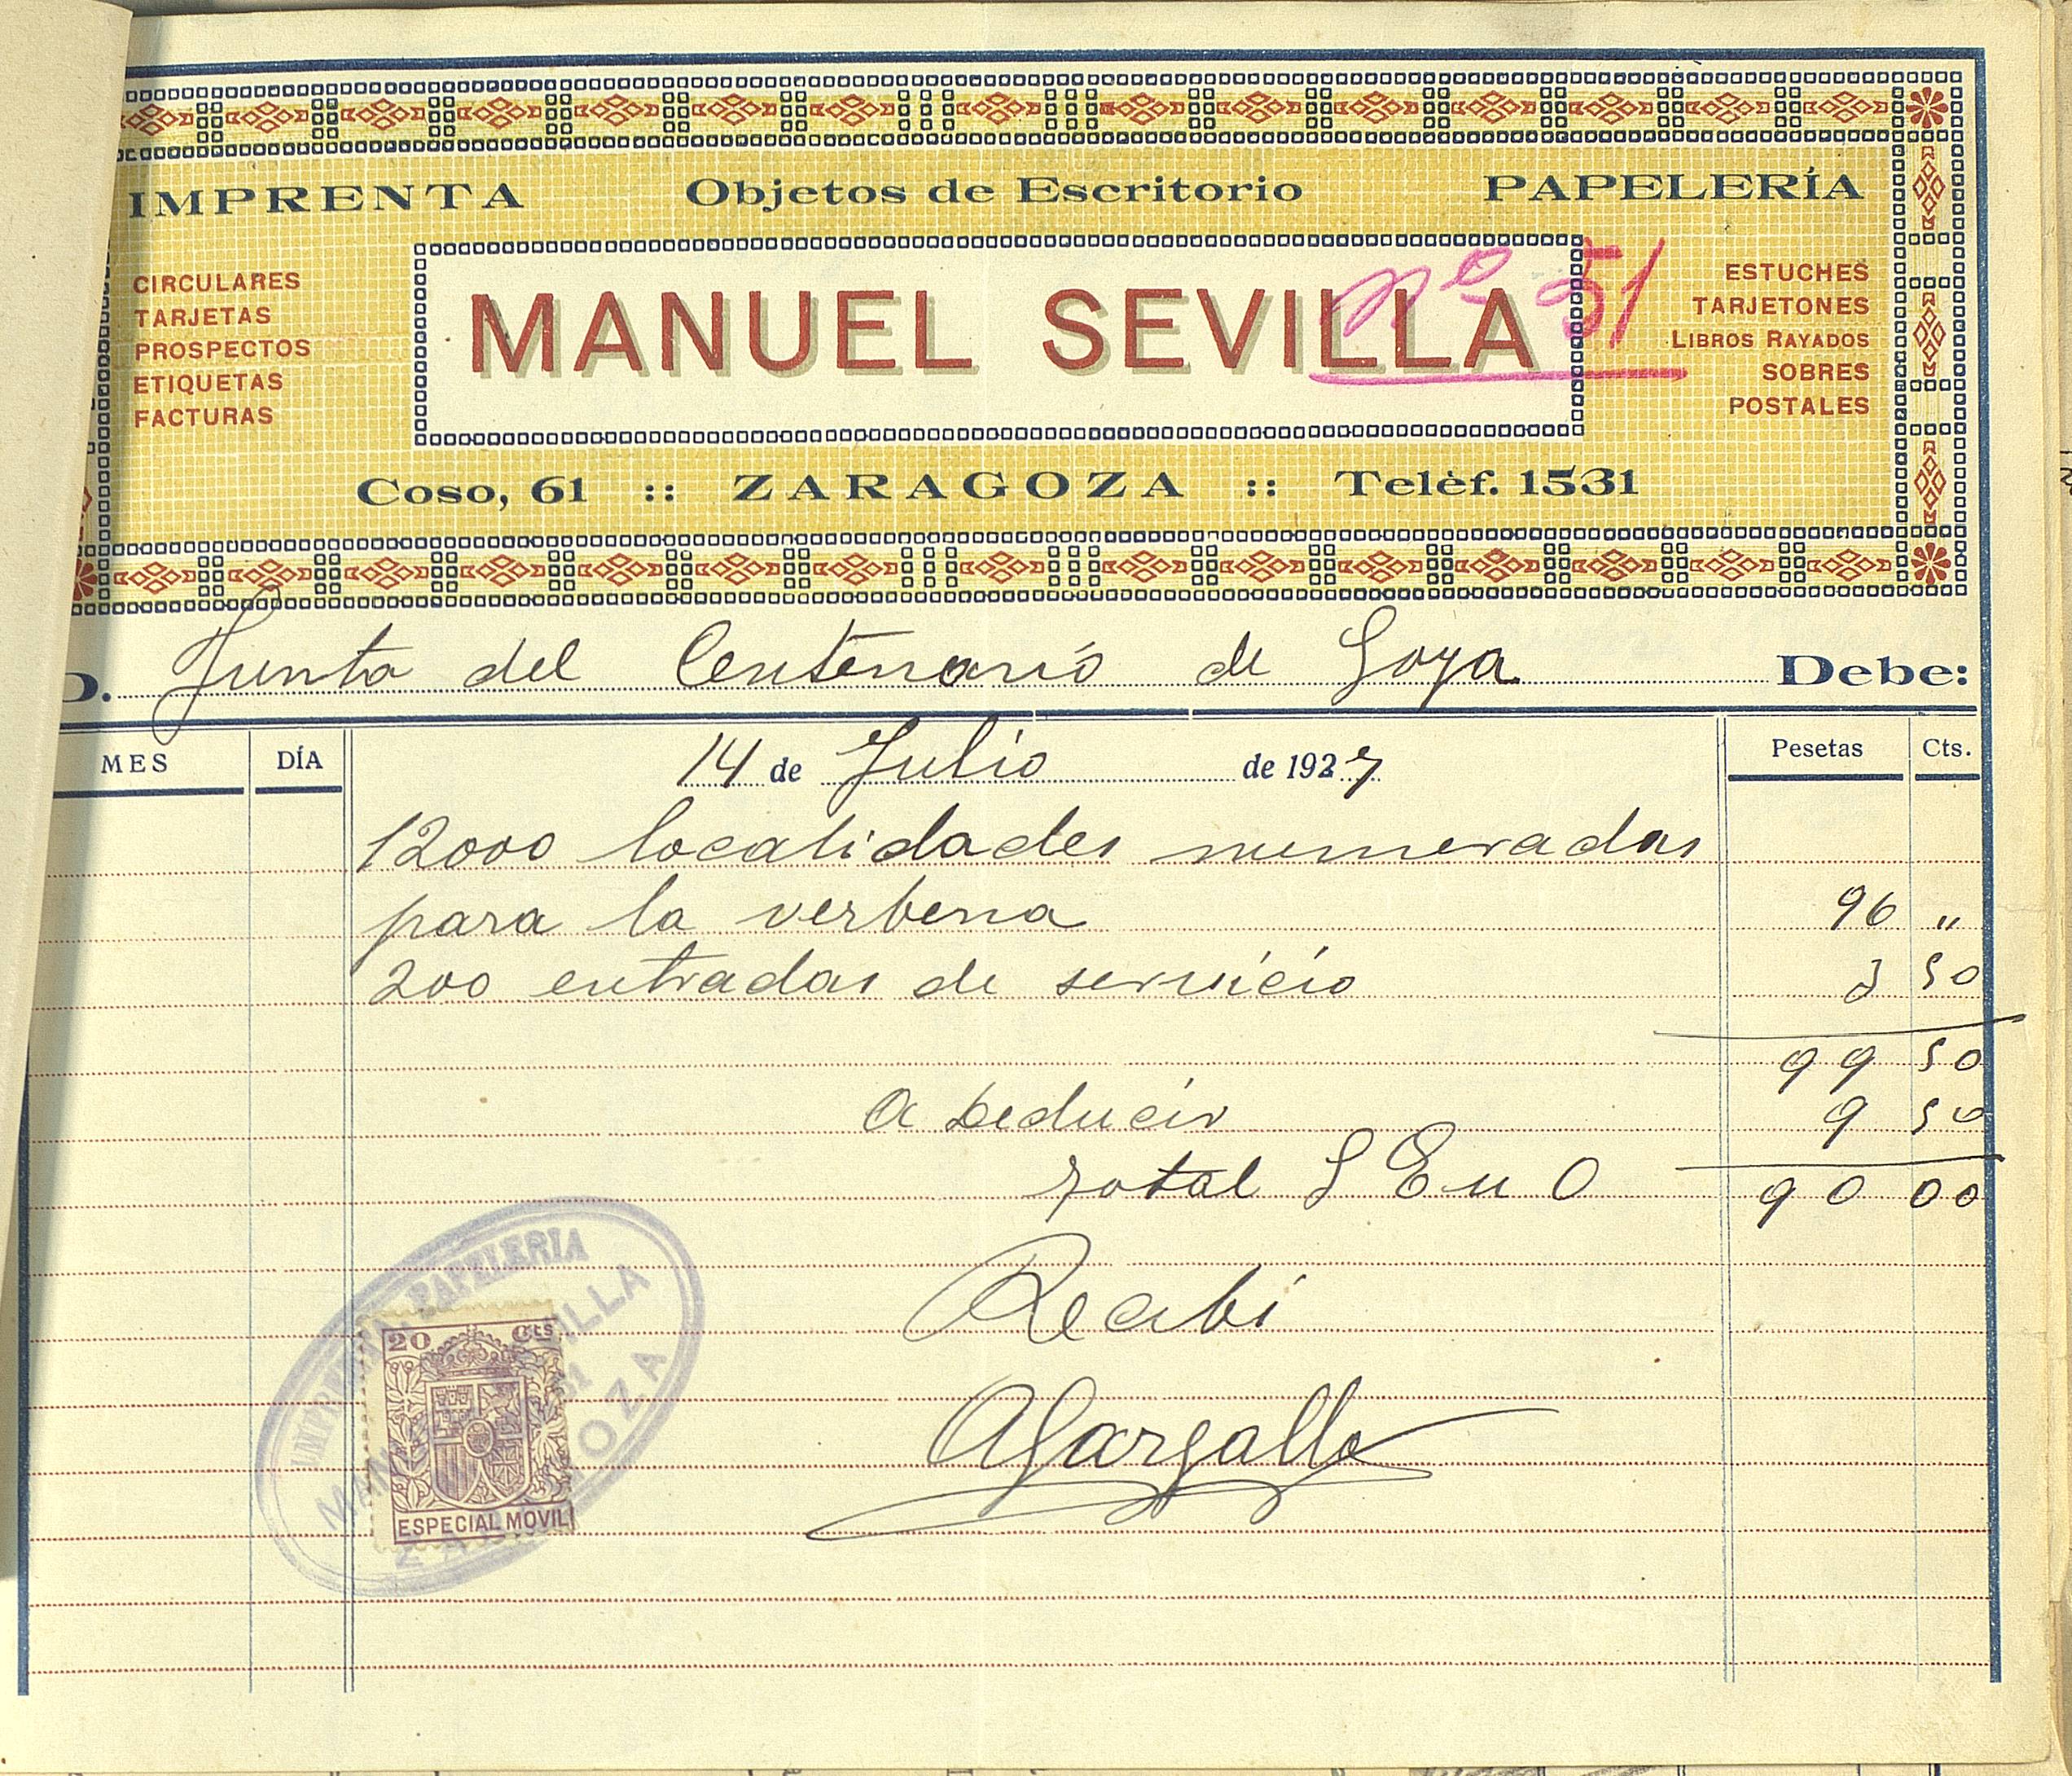 IMPRENTA Objetos de Escritorio PAPELERÍA
CIRCULARES
TARJETAS
PROSPECTOS
ETIQUETAS
FACTURAS
MANUEL SEVILLA
Nº 51
ESTUCHES
TARJETONES
LIBROS RAYADOS
SOBRES
POSTALES
Coso, 61 :: ZARAGOZA :: Teléf. 1531
D. Junta del Centenario de Goya Debe:
MES DÍA 14 de Julio de 1927 Pesetas Cts.
12000 localidades numeradas
para la verbena 96 "
200 entradas de servicio 3 50
99 50
a deducir 9 50
total S E u O 90 00
Recibi
AGargallo
IMPRENTA PAPELERIA
MANUEL SEVILLA
ZARAGOZA
20 Cts
ESPECIAL MOVIL